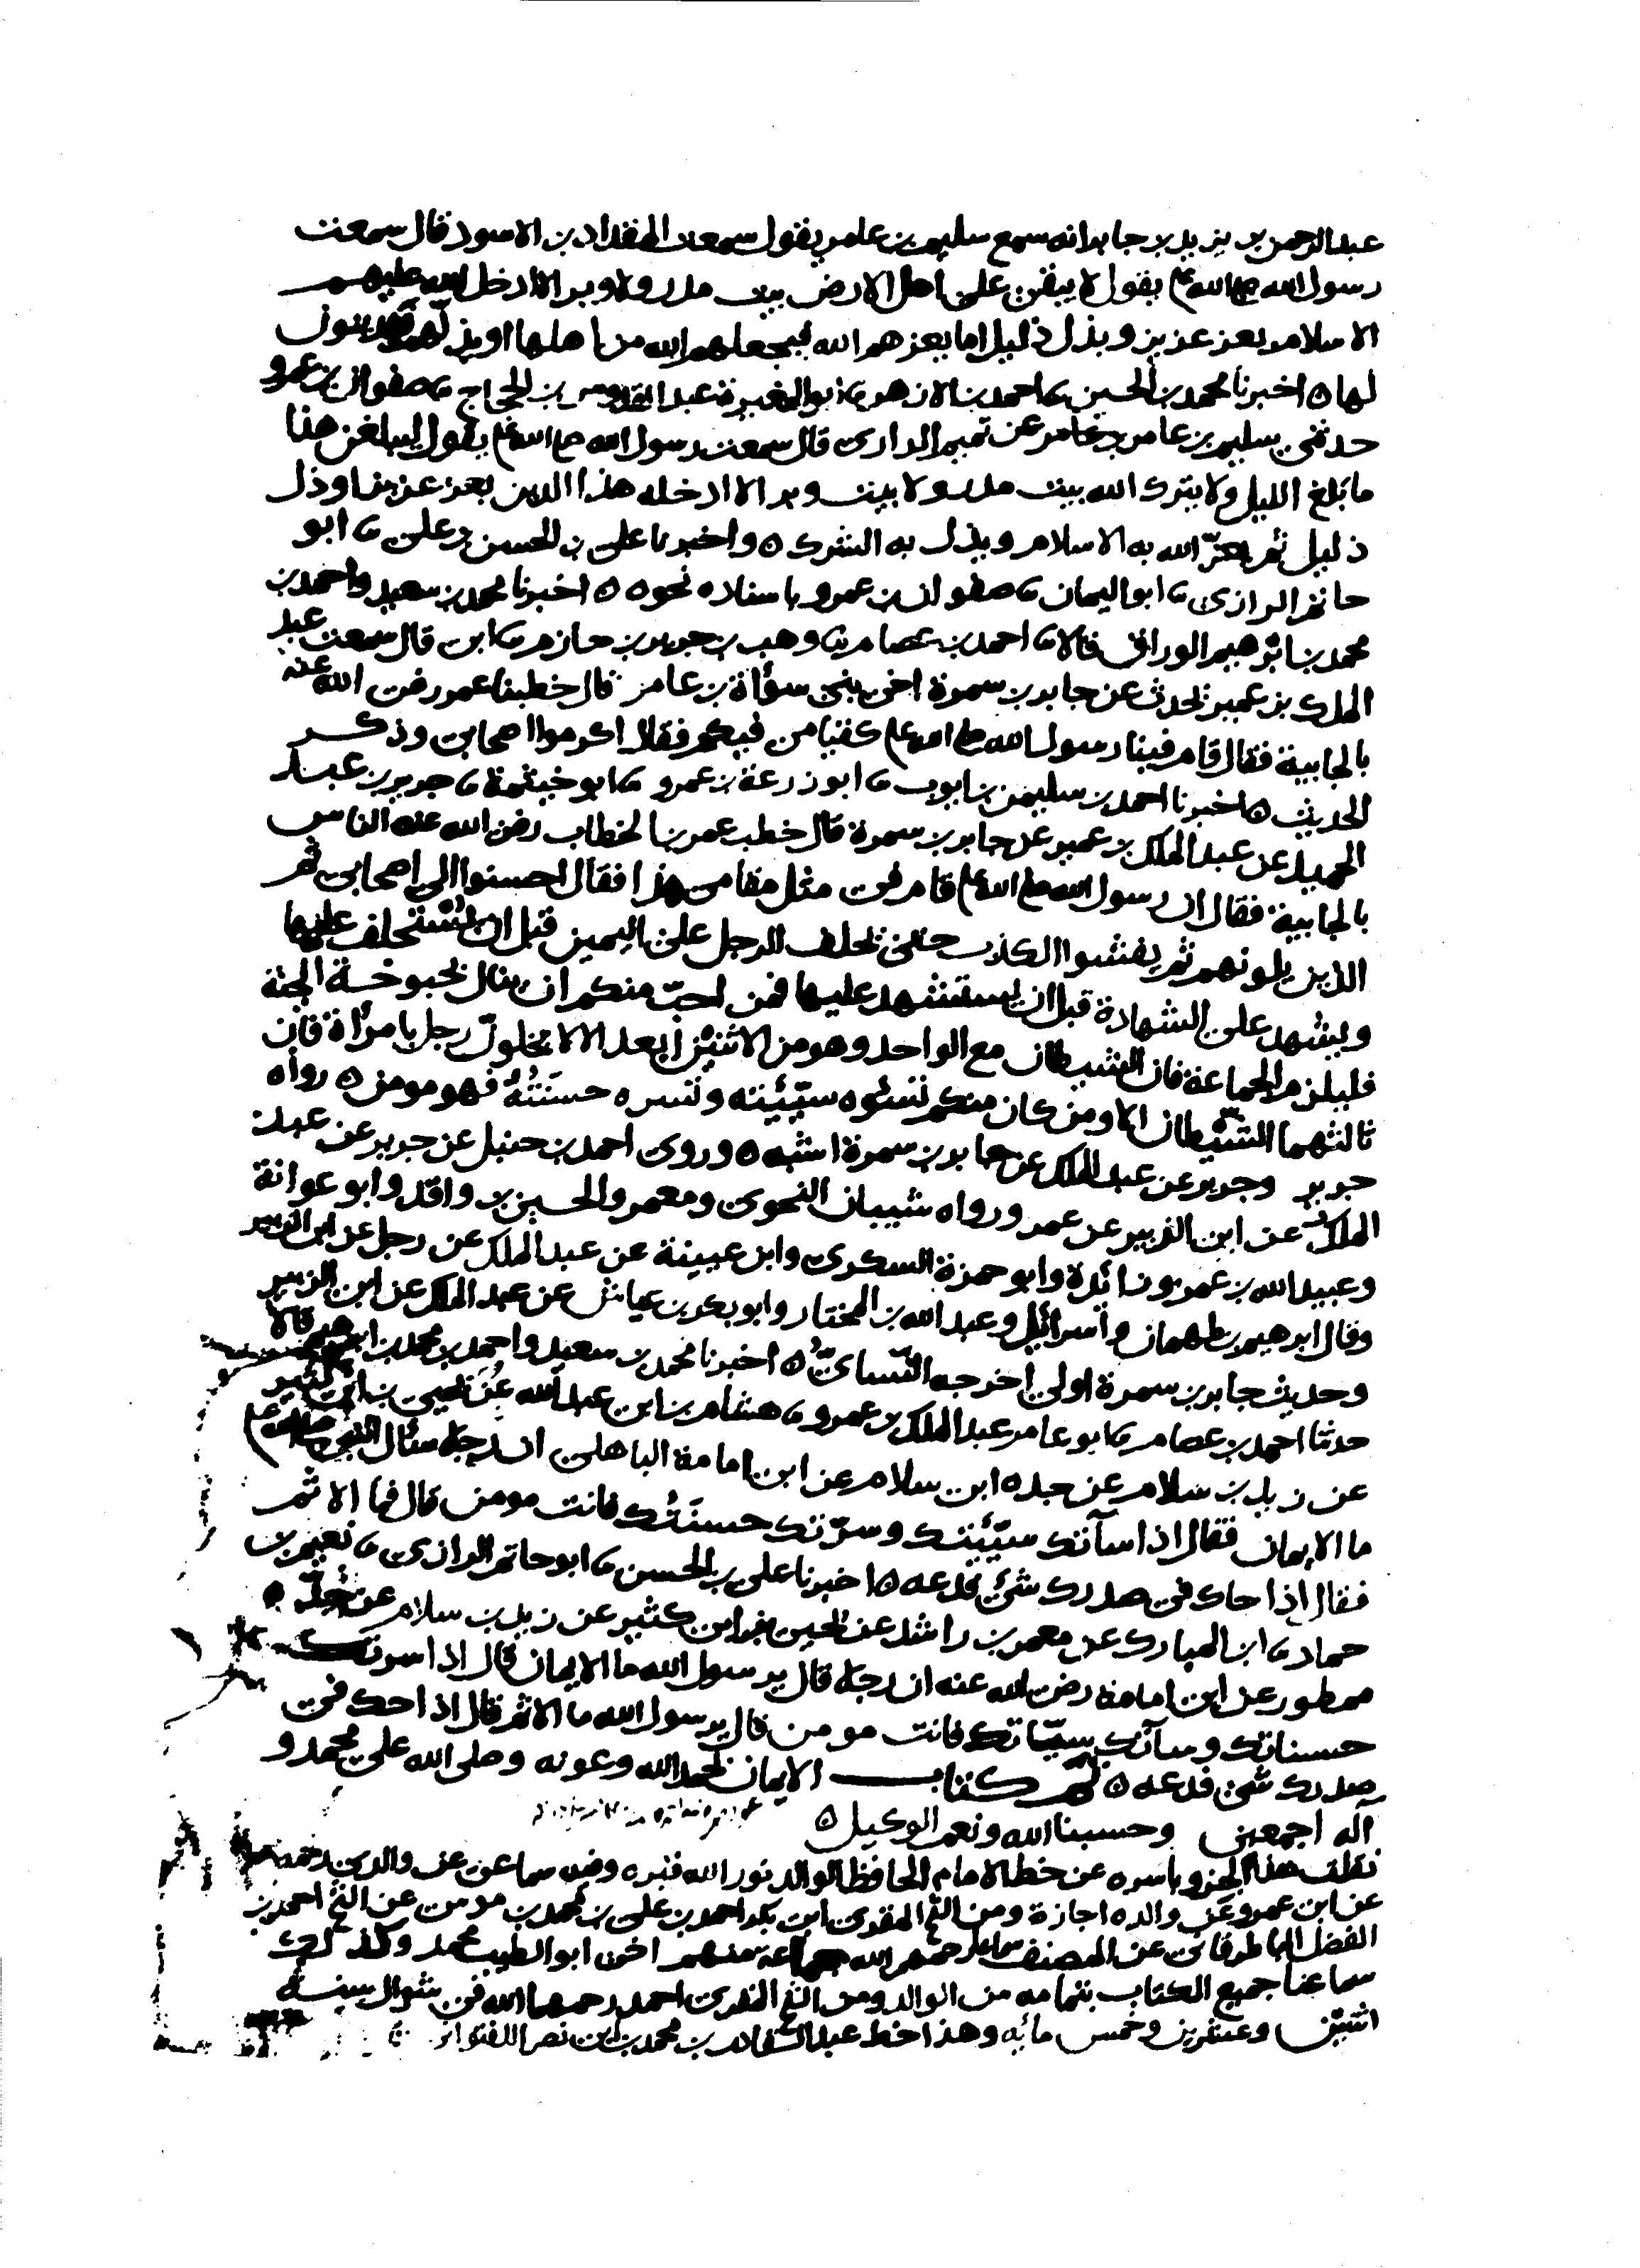 عبد الرحمن بن يزيد بن جابر انه سمع سليم بن عامر يقول سمعت المقداد بن الاسود قال سمعت
رسول الله صلى الله عليه يقول لا يبقى على اهل الارض بيت مدر ولا وبر الا ادخل الله عليهم
الاسلام بعز عزيز وبذل ذليل اما يعزهم الله فيجعلهم الله من اهلها او يذلهم فيدينون
لها ه اخبرنا محمد بن الحسين ثنا احمد بن الازهر ثنا ابو المغيرة عبد القدوس بن الحجاج ثنا صفوان بن عمرو
حدثني سليم بن عامر بن عامر عن تميم الداري قال سمعت رسول الله صلى الله عليه يقول ليبلغن هذا
ما بلغ الليل ولا يترك الله بيت مدر ولا بيت وبر الا ادخله هذا الدين بعز عزيز او ذل
ذليل ثم يعزّ الله به الاسلام ويذل به الشرك ه واخبرنا علي بن الحسن بن علي ثنا ابو
حاتم الرازي ثنا ابو اليمان ثنا صفوان بن عمرو باسناده نحوه ه اخبرنا محمد بن سعيد واحمد بن
محمد بن ابرهيم الوراق قالا ثنا احمد بن عصام ثنا وهب بن جرير بن حازم ثنا ابي قال سمعت عبد
الملك بن عمير يحدث عن جابر بن سمرة اخي بني سؤاة بن عامر قال خطبنا عمر رضي الله عنه
بالجابية فقال قام فينا رسول الله صلى الله عليه كقيامي فيكم فقال اكرموا اصحابي وذكر
الحديث ه اخبرنا احمد بن سليمن بن ايوب ثنا ابو زرعة بن عمرو ثنا ابو خيثمة ثنا جرير بن عبد
الحميد عن عبد الملك بن عمير عن جابر بن سمرة قال خطب عمر بن الخطاب رضي الله عنه الناس
بالجابية فقال ان رسول الله صلى الله عليه قام في مثل مقامي هذا فقال احسنوا الى اصحابي ثم
الذين يلونهم ثم يفشوا الكذب حتى يحلف الرجل على اليمين قبل ان يستحلف عليها
ويشهد على الشهادة قبل ان يستشهد عليها فمن احبّ منكم ان ينال بحبوحة الجنة
فليلزم الجماعة فان الشيطان مع الواحد وهو من الاثنين ابعد الا لا يخلونّ رجل بامرأة فان
ثالثهما الشيطان الا ومن كان منكم تسئوه سيّئته وتسره حسنته فهو مومن ه رواه
جرير وجرير عن عبد الملك عن جابر بن سمرة اشبه ه وروى احمد بن حنبل عن جرير عن عبد
الملك عن ابن الزبير عن عمر ورواه شيبان النحوي ومعمر والحسين بن واقد وابو عوانة
وعبيد الله بن عمرو وزائدة وابو حمزة السكري وابن عيينة عن عبد الملك عن رجل عن ابن الزبير
وقال ابرهيم بن طهمان واسرائيل وعبد الله بن المختار وابو بكر بن عياش عن عبد الملك عن ابن الزبير
وحديث جابر بن سمرة اولى اخرجه النّسائيّ ه اخبرنا محمد بن سعيد واحمد بن محمد بن ابرهيم قالا
حدثنا احمد بن عصام ثنا ابو عامر عبد الملك بن عمرو ثنا هشام بن ابي عبد الله عن يحيى بن ابي كثير
عن زيد بن سلام عن جده ابي سلام عن ابي امامة الباهلي ان رجلا سئال النبي صلى الله عليه
ما الايمان فقال اذا سآتك سيّئتك وسرّتك حسنتك فانت مومن قال فما الاثم
فقال اذا حاك في صدرك شيئ فدعه ه اخبرنا علي بن الحسن ثنا ابو حاتم الرازي ثنا نعيم بن
حماد ثنا ابن المبارك عن معمر بن راشد عن يحيى بن ابي كثير عن زيد بن سلام عن جدّه
ممطور عن ابي امامة رضي الله عنه ان رجلا قال يرسول الله ما الايمان قال اذا سرتك
حسناتك وسآتك سيّاتك فانت مومن قال يرسول الله ما الاثم قال اذا حك في
صدرك شيئ فدعه ه تم كتاب الايمان بحمد الله وعونه وصلى الله على محمد و
آله اجمعين وحسبنا الله ونعم الوكيل ه
نقلت هذا الجزو باسره عن خط الامام الحافظ الوالد نور الله قبره وفيه سماعي عن والدي رحمه
عن ابي عمرو عن والده اجازة ومن الشيخ المقري ابي بكر احمد بن علي بن محمد بن مومن عن الشيخ احمد بن
الفضل الباطرقاني عن المصنف سماعا رحمهم الله جماعة منهم اخي ابو الطيب محمد وكذلك
سماعنا جميع الكتاب بتمامه من الوالد ومن الشيخ المقري احمد رحمهما الله في شوال سنة
اثنتين وعشرين وخمس مائه وهذا خط عبد بن محمد بن ابي نصر اللفتواني